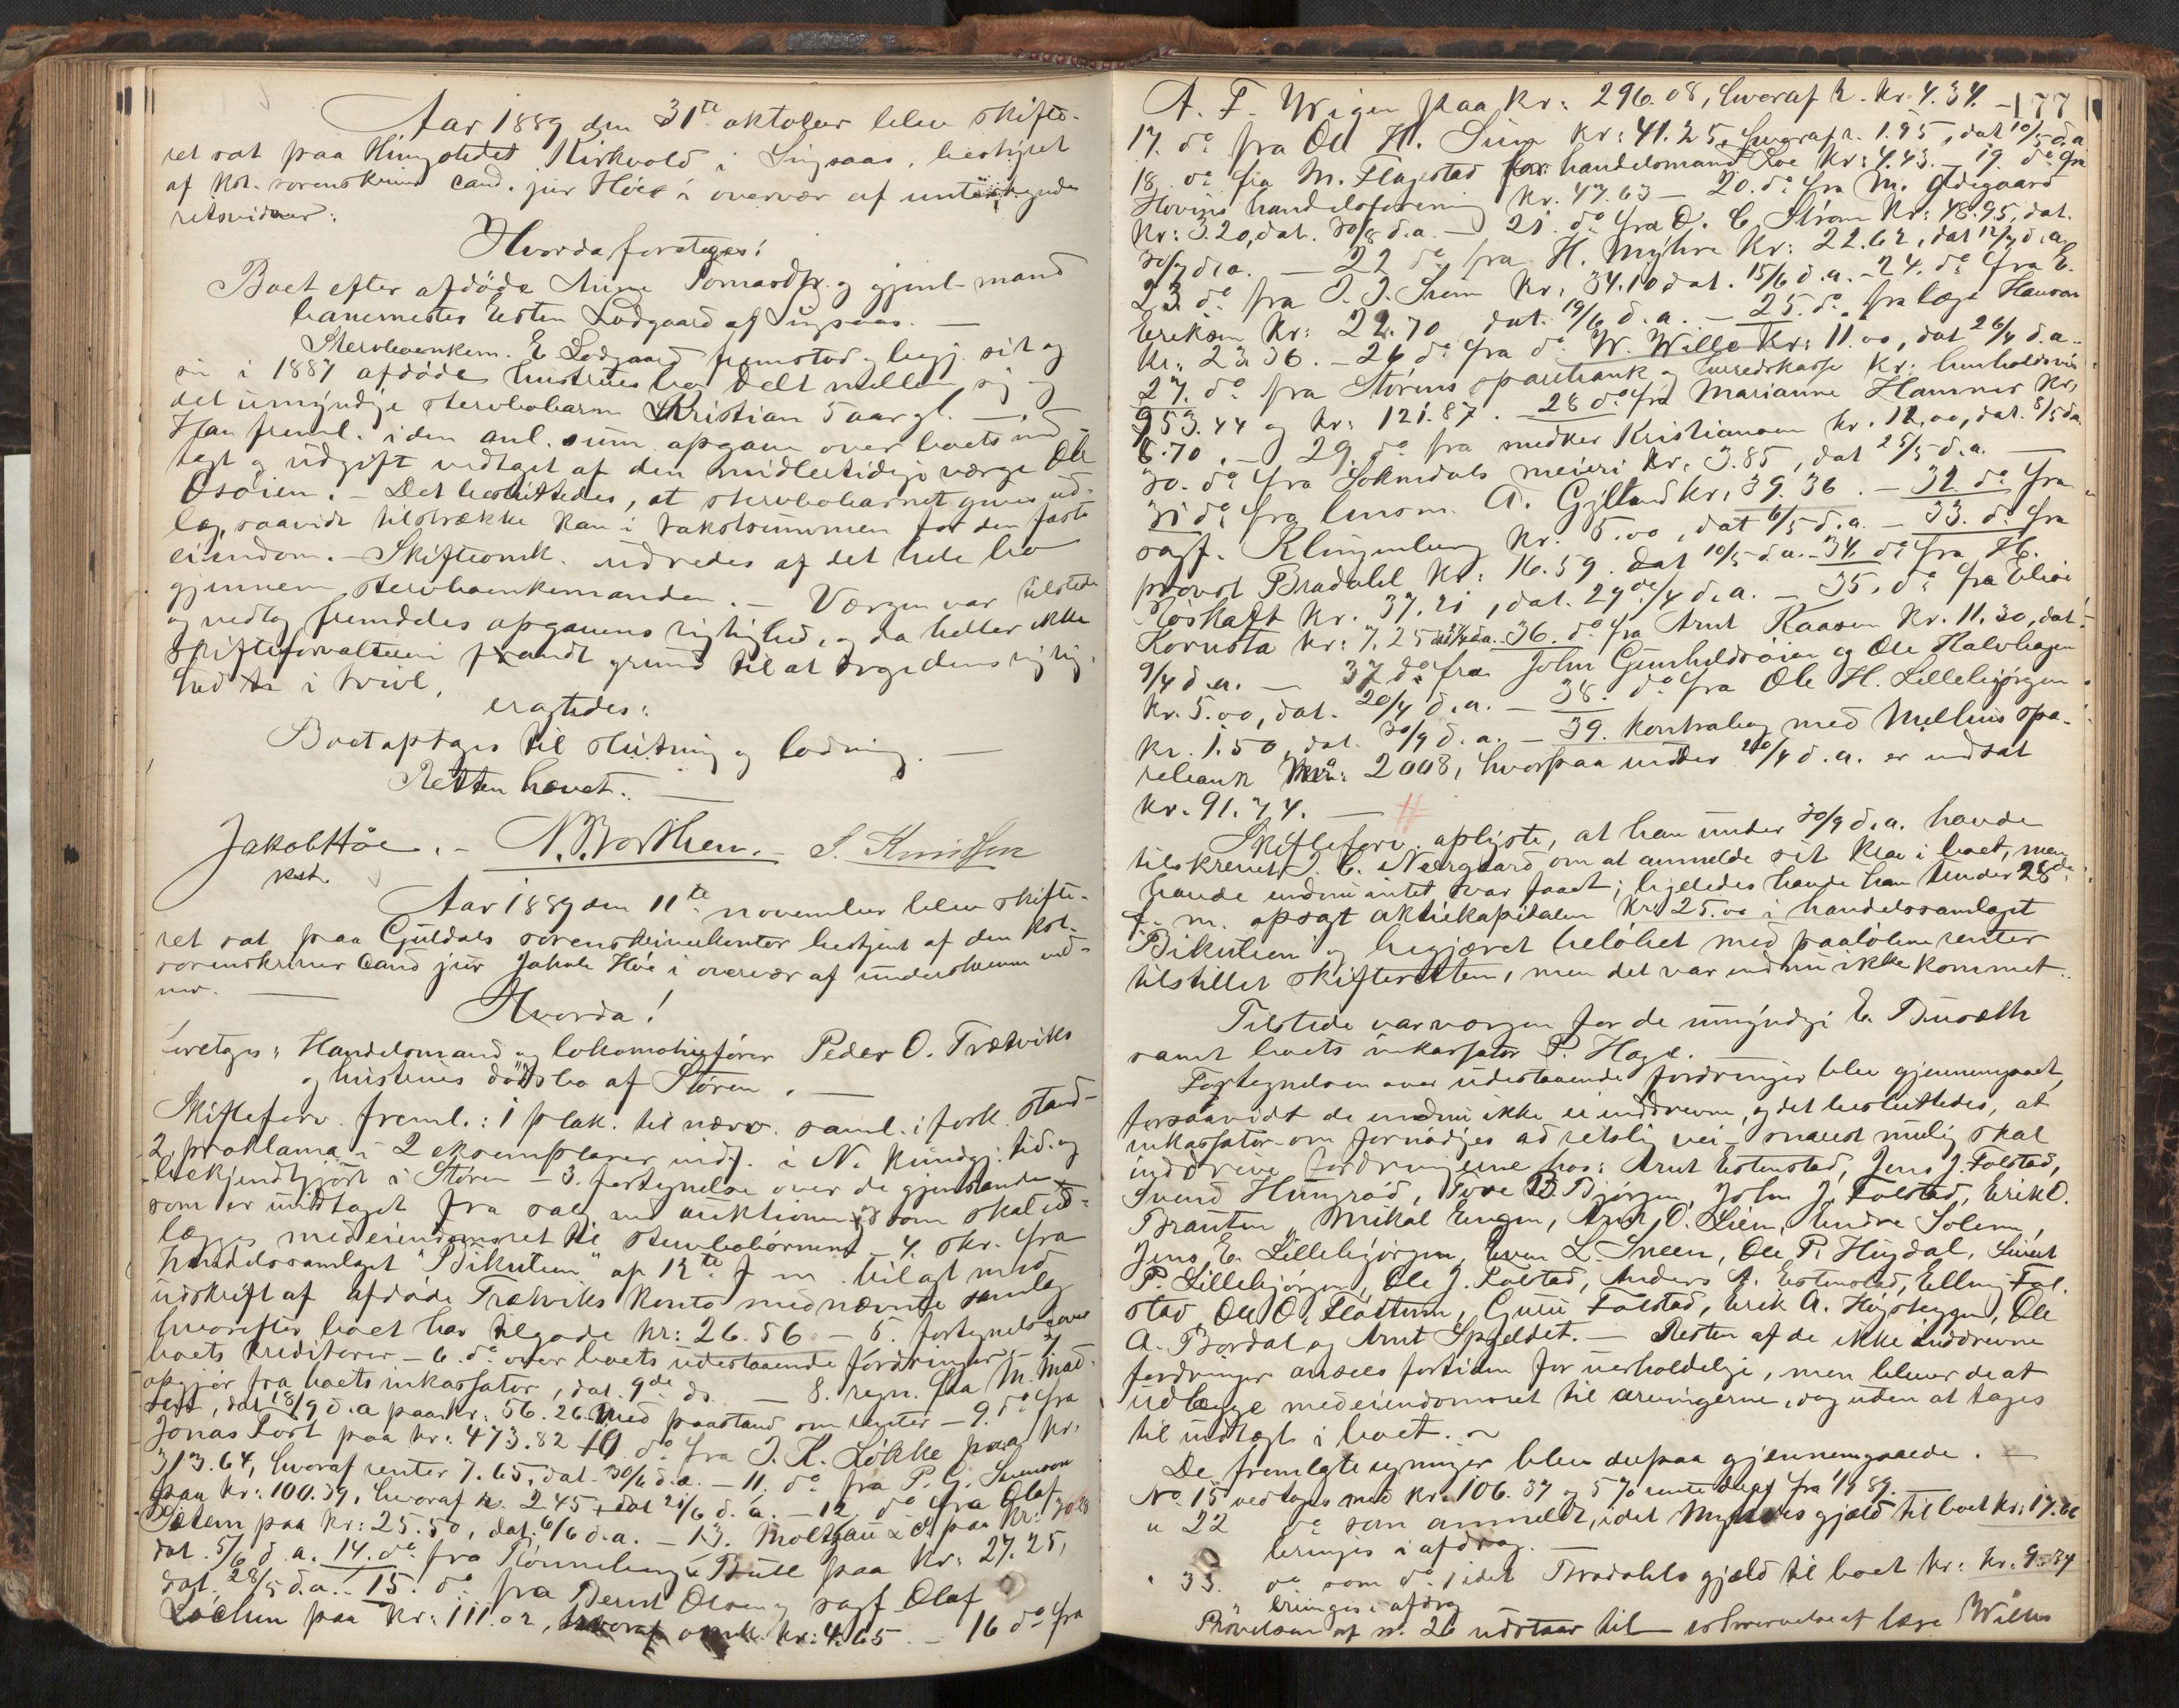 Aar 1889 den 31te oktober blev skifte-
ret sat paa thingstedet Kirkvold i Singsaas, bestyret
af kst. sorenskriver cand. jur Höe i overvær af undertegnede
retsvidner:
Hvorda foretoges:
Boet efter afdöde Anne Tomasdtr. og gjenl. mand
banemester Esten Lodgaard af Singsaas. —
Stervboenkem. E Lodgaard fremstod og begj. sit og
sin i 1887 afdöde hustrues bo delt mellem sig og
det umyndige stervbobarn Kristian 5 aar gl. —
Han freml. i den anl. sum. opgave over boets ind-
tægt og udgift vedtaget af den midlertidige værge Ole
Osöien. – Det besluttedes, at stervbobarnet gives ud-
læg saavidt tilstrække kan i takstsummen for den faste
eiendom. – Skifteomk. udredes af det hele bo
gjennem stervboenkemanden. – Værgen var tilstede
og vedtog fremdeles opgavens rigtighed, og da heller ikke
skifteforvalteren fandt grund til at drage dens rigtig-
hed i tvivl,
eragtedes:
Boet optages til slutning og lodning. —
Retten hævet. —
Jakob Höe. – N. Vorthen. – S. Knudsen
kst.
Aar 1889 den 11te november blev skifte-
ret sat paa Guldals sorenskriverkontor bestyret af den kst.
sorenskriver cand jur Jakob Höe i overvær af underskrevne vid-
ner. —
Hvorda!
foretoges: Handelsmand og lokomotivförer Peder O. Trætviks
og hustrues dödsbo af Stören. —
Skifteforv. freml.: 1 plak. til nærv. saml. i fork. stand –
2. proklama i 2 eksemplarer indr. i N. kundgj. tid. og
bekjendtgjort i Stören – 3. fortegnelse over de gjenstande
som er undtaget fra salg ved auktionen og som skal ud-
lægges med eiendomsret til stervbobörnene – 4. skr. fra
handelssamlaget "Bikuben" af 12te f. m. bilagt med
udskrift af afdöde Trætviks konto med nævnte samlag
hvorefter boet har tilgode kr: 26.56 – 5. fortegnelse over
boets kreditorer – 6. do over boets udestaaende fordringer – 7
opgjör fra boets inkassator, dat. 9de ds. – 8. regn. fra M. Mad-
sen, dat 18/9 d.a paa kr: 56.26 med paastand om renter – 9. do fra
Jonas Fort paa kr: 473.82 10 do fra J. K. Lökke paa kr:
313.64, hvoraf renter 7.65, dat. 30/6 d.a. – 11. do fra P. G. Svenson
paa kr: 100.39, hvoraf r. 2.45, dat 21/6 d.a. – 12 do fra Olaf
Solem paa kr: 25.50, dat. 6/6 d.a. – 13. Moltzau & Co paa kr: 30.28
dat. 5/6 d.a. 14. do fra Rönneberg & Bull paa kr: 27.25,
dat. 28/5 d.a. – 15. do fra Bernt Olsen og sagf. Olaf
Lochen paa kr: 111.02, hvoraf omk. kr: 4.65. – 16 do fra
177
A. F. Wigen paa kr: 296.08, hvoraf r. kr. 4.34. –
17. do fra Ole H. Siem kr: 41.25, hvoraf r. 1.95, dat 10/5 d.a
18. do fra M. Flagestad for handelsmand Loe kr: 4.43. – 19. do fra
Hovins handelsforening kr. 47.63 – 20. do fra M. Ödegaard
kr: 3.20, dat. 30/8 d.a. – 21. do fra O. C. Ström kr: 48.95, dat.
30/7 d.a. – 22 do fra H. Myhre kr: 22.62, dat 12/7 d.a.
23 do fra J. J. Srem kr. 34.10 dat. 15/6 d.a. – 24. do fra E.
Erikson kr: 22.70 dat. 19/6 d.a. – 25. do fra læge Hanson
kr: 23.36. – 26 do fra do W. Wille kr: 11.00, dat 26/4 d.a. –
27. do fra Störens sparebank og herredskasse kr: henholdsvis
953.44 og kr: 121.87. – 28 do fra Marianne Hammer kr.
6.70. – 29. do fra snedker Kristiansen kr. 12.00, dat. 8/5 d.a.
30. do fra Soknedals meieri kr. 3.85, dat 25/5 d.a. —
31 do fra lensm. A. Gylland kr. 39.36. – 32. do fra
sagf. Klingenberg kr. 5.00, dat 6/5 d.a. – 33. do fra
provst Bradahl kr: 16.59. dat 10/5 d.a. – 34. do fra H.
Röskaft kr. 37.21, dat. 29de/4 d.a. – 35. do fra Elias
Kornsta kr: 7.25 – 36. do fra Arnt Kaasen kr. 11.30, dat.
9/4 d.a. – 37 do fra John Gunhildsöien og Ole Halvhagen
kr. 5.00, dat. 20/4 d.a. – 38. do fra Ole H. Lillebjörgen
kr. 1.50, dat. 30/9 d.a. – 39. kontrabog med Melhus spa-
rebank No: 2008, hvorpaa under 20/4 d.a. er indsat
kr. 91.74. —
Skifteforv. oplyste, at han under 30/9 d.a. havde
tilskrevet J. C. Neergaard om at anmelde sit krav i boet, men
havde endnu intet svar faaet; ligeledes havde han under 28de
f. m. opsagt aktiekapitalen kr: 25.00 i handelssamlaget
Bikuben og begjæret belöbet med paalöbne renter
tilstillet skifteretten, men det var endnu ikke kommet.
Tilstede var værgen for de umyndige E. Busæth
samt boets inkassator P. Hage. —
Fortegnelsen over udestaaende fordringer blev gjennemgaaet,
forsaavidt de endnu ikke er inddrevne, og det besluttedes, at
inkassator – om fornödiges ad retslig vei – snarest mulig skal
inddrive fordringerne hos: Arnt Estenstad, Jens J. Folstad,
Svend Hungröd, Tore B. Bjørgen, John J. Folstad, Erik O.
Brauten, Mikal Engen, Arnt O. Lien, Endre Solem,
Jens E. Lillebjörgen, Even L. Sneen, Ole P. Hugdal, Sivert
P. Lillebjörgen, Ole J. Folstad, Anders A. Estenstad, Elling Fol-
stad, Ole O. Flöttum, Guru Folstad, Erik A. Høgsteggen, Ole
A. Bordal og Arnt Spjeldet. – Resten af de ikke inddrevne
fordringer ansees fortiden for uerholdelige, men bliver de at
udlægge med eiendomsret til arvingerne, dog uden at tages
til indtægt i boet. –
De fremlagte regninger blev derpaa gjennemgaaede. –
No 15 vedtoges med kr. 106.37 og 5 % rente deraf fra 1/7 89.
" 22 do som anmeldt, idet Myhres gjæld til boet kr: 17.66
bringes i afdrag. —
" 33. do som do, idet Bradahls gjæld til boet kr: kr. 9.34
bringes i afdrag
Prövelsen af n. 26 udstaar til erhvervelse af læge Willes